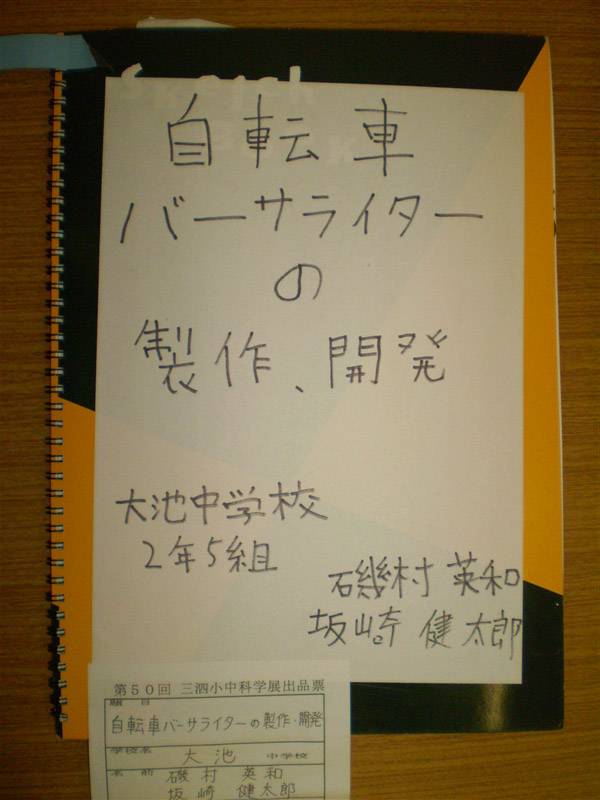 Sketch
自転車
バーサライター
の
製作、開発
大池中学校
2年5組
磯村 英和
坂崎 健太郎
第50回 三泗小中科学展出品票
題目
自転車バーサライターの製作・開発
学校名 大池 中学校
名前 磯村 英和
坂崎 健太郎